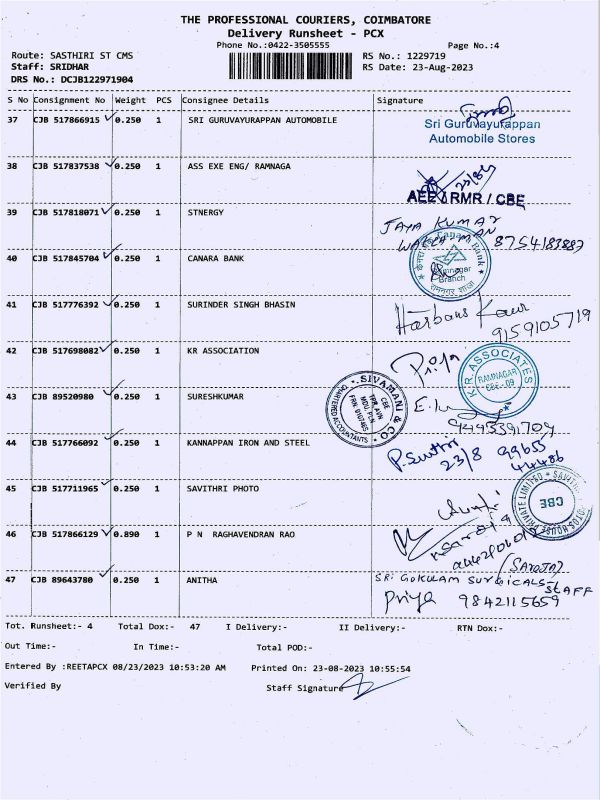 THE PROFESSIONAL COURIERS, COIMBATORE
Delivery Runsheet - PCX
Phone No.:0422-3505555
Page No.:4
Route: SASTHIRI ST CMS
Staff: SRIDHAR
DRS No.: DCJB122971904
RS No.: 1229719
RS Date: 23-Aug-2023
S No Consignment No Weight PCS Consignee Details Signature
37 CJB 517866915 0.250 1 SRI GURUVAYURAPPAN AUTOMOBILE
Sri Guruvayurappan
Automobile Stores
38 CJB 517837538 0.250 1 ASS EXE ENG/ RAMNAGA
23/8
AEE RMR / CBE
39 CJB 517818071 0.250 1 STNERGY
JAYA KUMAR
8754183883
40 CJB 517845704 0.250 1 CANARA BANK
Canara Bank
केनरा बैंक
Ramnagar
Branch
रामनगर शाखा
41 CJB 517776392 0.250 1 SURINDER SINGH BHASIN
Harbans Kaur
9159105719
42 CJB 517698082 0.250 1 KR ASSOCIATION
Priya
K.R. ASSOCIATES
RAMNAGAR
CBE-09
43 CJB 89520980 0.250 1 SURESHKUMAR
SIVAMANI & CO
CHARTERED ACCOUNTANTS
CBE
9443391709
44 CJB 517766092 0.250 1 KANNAPPAN IRON AND STEEL
23/8 99655
44486
45 CJB 517711965 0.250 1 SAVITHRI PHOTO
PRIVATE LIMITED
CBE
46 CJB 517866129 0.890 1 P N RAGHAVENDRAN RAO
(SAROJA)
47 CJB 89643780 0.250 1 ANITHA
SRI GOKULAM SURGICALS STAFF
Priya 9842115659
Tot. Runsheet:- 4 Total Dox:- 47 I Delivery:- II Delivery:- RTN Dox:-
Out Time:- In Time:- Total POD:-
Entered By :REETAPCX 08/23/2023 10:53:20 AM Printed On: 23-08-2023 10:55:54
Verified By Staff Signature